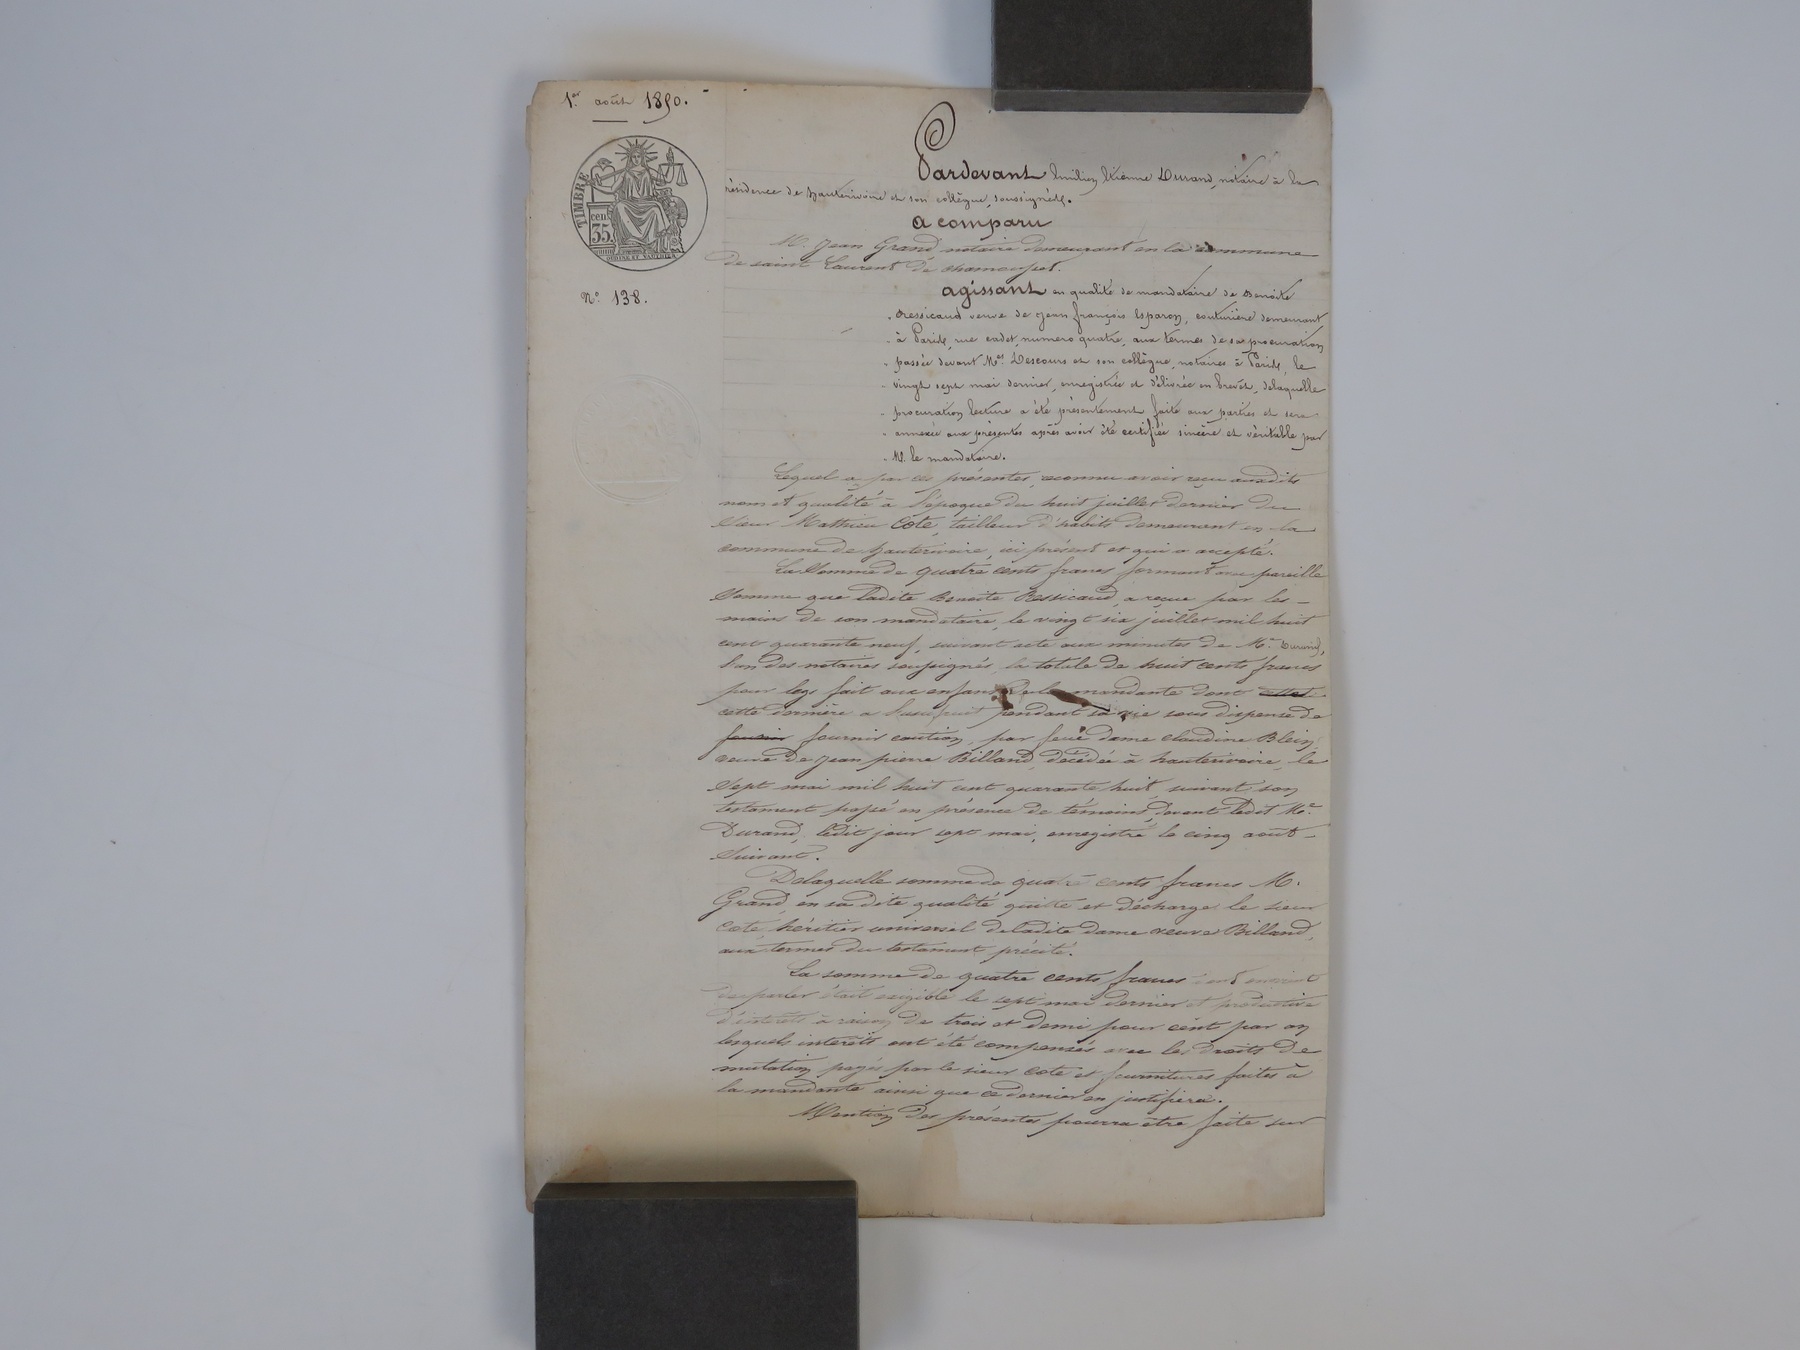 1er août 1850.
TIMBRE
cen
35.
No 138.
Pardevant Emilien Etienne Durand, notaire à la
résidence de hauterivoire et son collègue, soussignés.
a comparu
M. Jean Grand notaire demeurant en la commune
de saint Laurent de chamousset.
agissant en qualité de mandataire de Benoite
Ressicaud veuve de jean françois Esparon, couturière demeurant
à Paris, rue cadet, numero quatre, aux termes de sa procuration
passée devant Mes Descours et son collègue, notaires à Paris, le
vingt sept mai dernier, enregistrée et délivrée en brevet, delaquelle
procuration lecture a été présentement faite aux parties et sera
annexée aux présentes après avoir été certifiée sincère et véritable par
M. le mandataire.
Lequel a par ces présentes, reconnu avoir reçu auxdits
nom et qualité à l'époque du huit juillet dernier du
sieur Mathieu Cote, tailleur d'habits demeurant en la
commune de hauterivoire, ici présent et qui a accepté.
La somme de quatre cents francs formant avec pareille
somme que ladite Benoite Ressicaud, a reçue par les
mains de son mandataire, le vingt six juillet mil huit
cent quarante neuf, suivant acte aux minutes de Me Durand,
l'un des notaires soussignés, la totale de huit cents francs
pour legs fait aux enfans de la mandante dont
cette dernière a l'usufruit pendant sa vie sous dispense de
fournir caution, par feue dame claudine Blein
veuve de jean pierre Billand, décédée à hauterivoire, le
sept mai mil huit cent quarante huit, suivant son
testament passé en présence de témoins, devant ledit Me
Durand, ledit jour sept mai, enregistré le cinq août
suivant.
Delaquelle somme de quatre cents francs M.
Grand, en sa dite qualité quitte et décharge le sieur
Cote, héritier universel de ladite dame veuve Billand,
aux termes du testament précité.
La somme de quatre cents francs dont on vient
de parler était exigible le sept mai dernier et productive
d'intérêts à raison de trois et demi pour cent par an
lesquels intérêts ont été compensés avec les droits de
mutation payés par le sieur Cote et fournitures faites à
la mandante ainsi que ce dernier en justifiera.
Mention des présentes pourra être faite sur